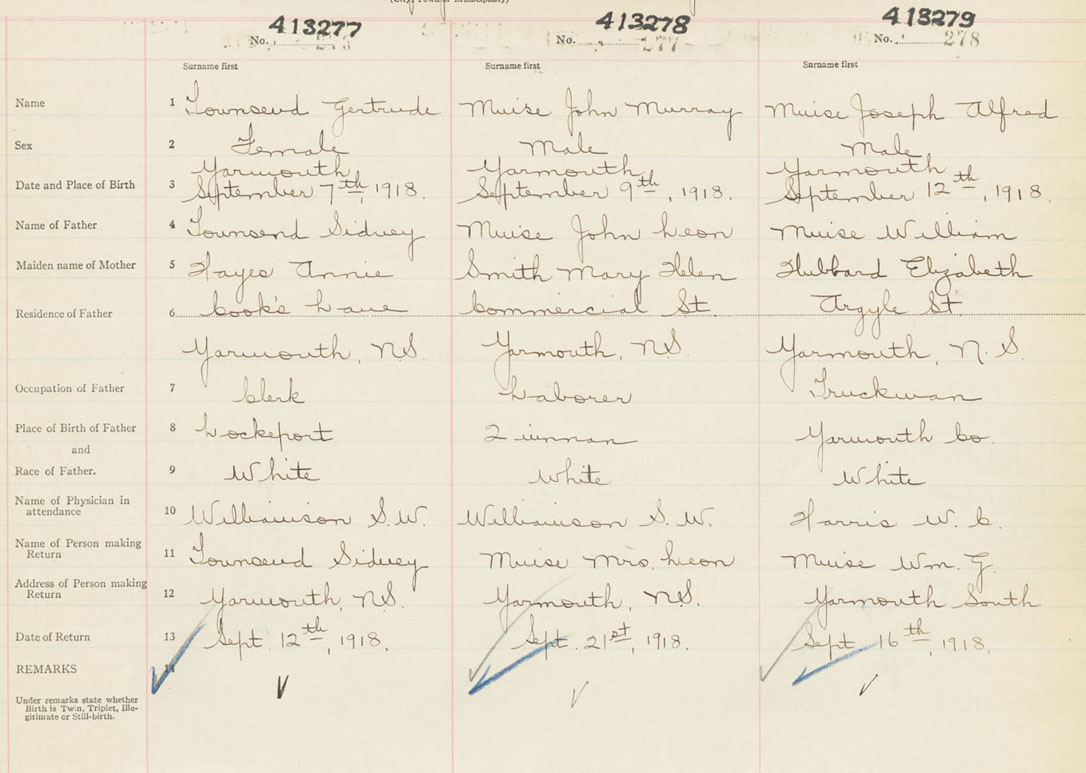 (City, Town or Municipality)
413277 413278 413279
No. No. 277 No. 278
Surname first Surname first Surname first
Name 1 Townsend Gertrude Muise John Murray Muise Joseph Alfred
Sex 2 Female Male Male
Yarmouth Yarmouth Yarmouth
Date and Place of Birth 3 September 7th, 1918. September 9th, 1918. September 12th, 1918.
Name of Father 4 Townsend Sidney Muise John Leon Muise William
Maiden name of Mother 5 Hayes Annie Smith Mary Helen Hubbard Elizabeth
Residence of Father 6 Cook's Lane Commercial St. Argyle St.
Yarmouth, N.S. Yarmouth, N.S. Yarmouth, N.S.
Occupation of Father 7 Clerk Laborer Truckman
Place of Birth of Father 8 Lockeport Quinnan Yarmouth Co.
and
Race of Father. 9 White White White
Name of Physician in
attendance 10 Williamson S.W. Williamson S.W. Harris W. C.
Name of Person making
Return 11 Townsend Sidney Muise Mrs. Leon Muise Wm. G.
Address of Person making
Return 12 Yarmouth, N.S. Yarmouth, N.S. Yarmouth South
Date of Return 13 Sept. 12th, 1918. Sept. 21st, 1918. Sept. 16th, 1918.
REMARKS 14
Under remarks state whether
Birth is Twin, Triplet, Ille-
gitimate or Still-birth.